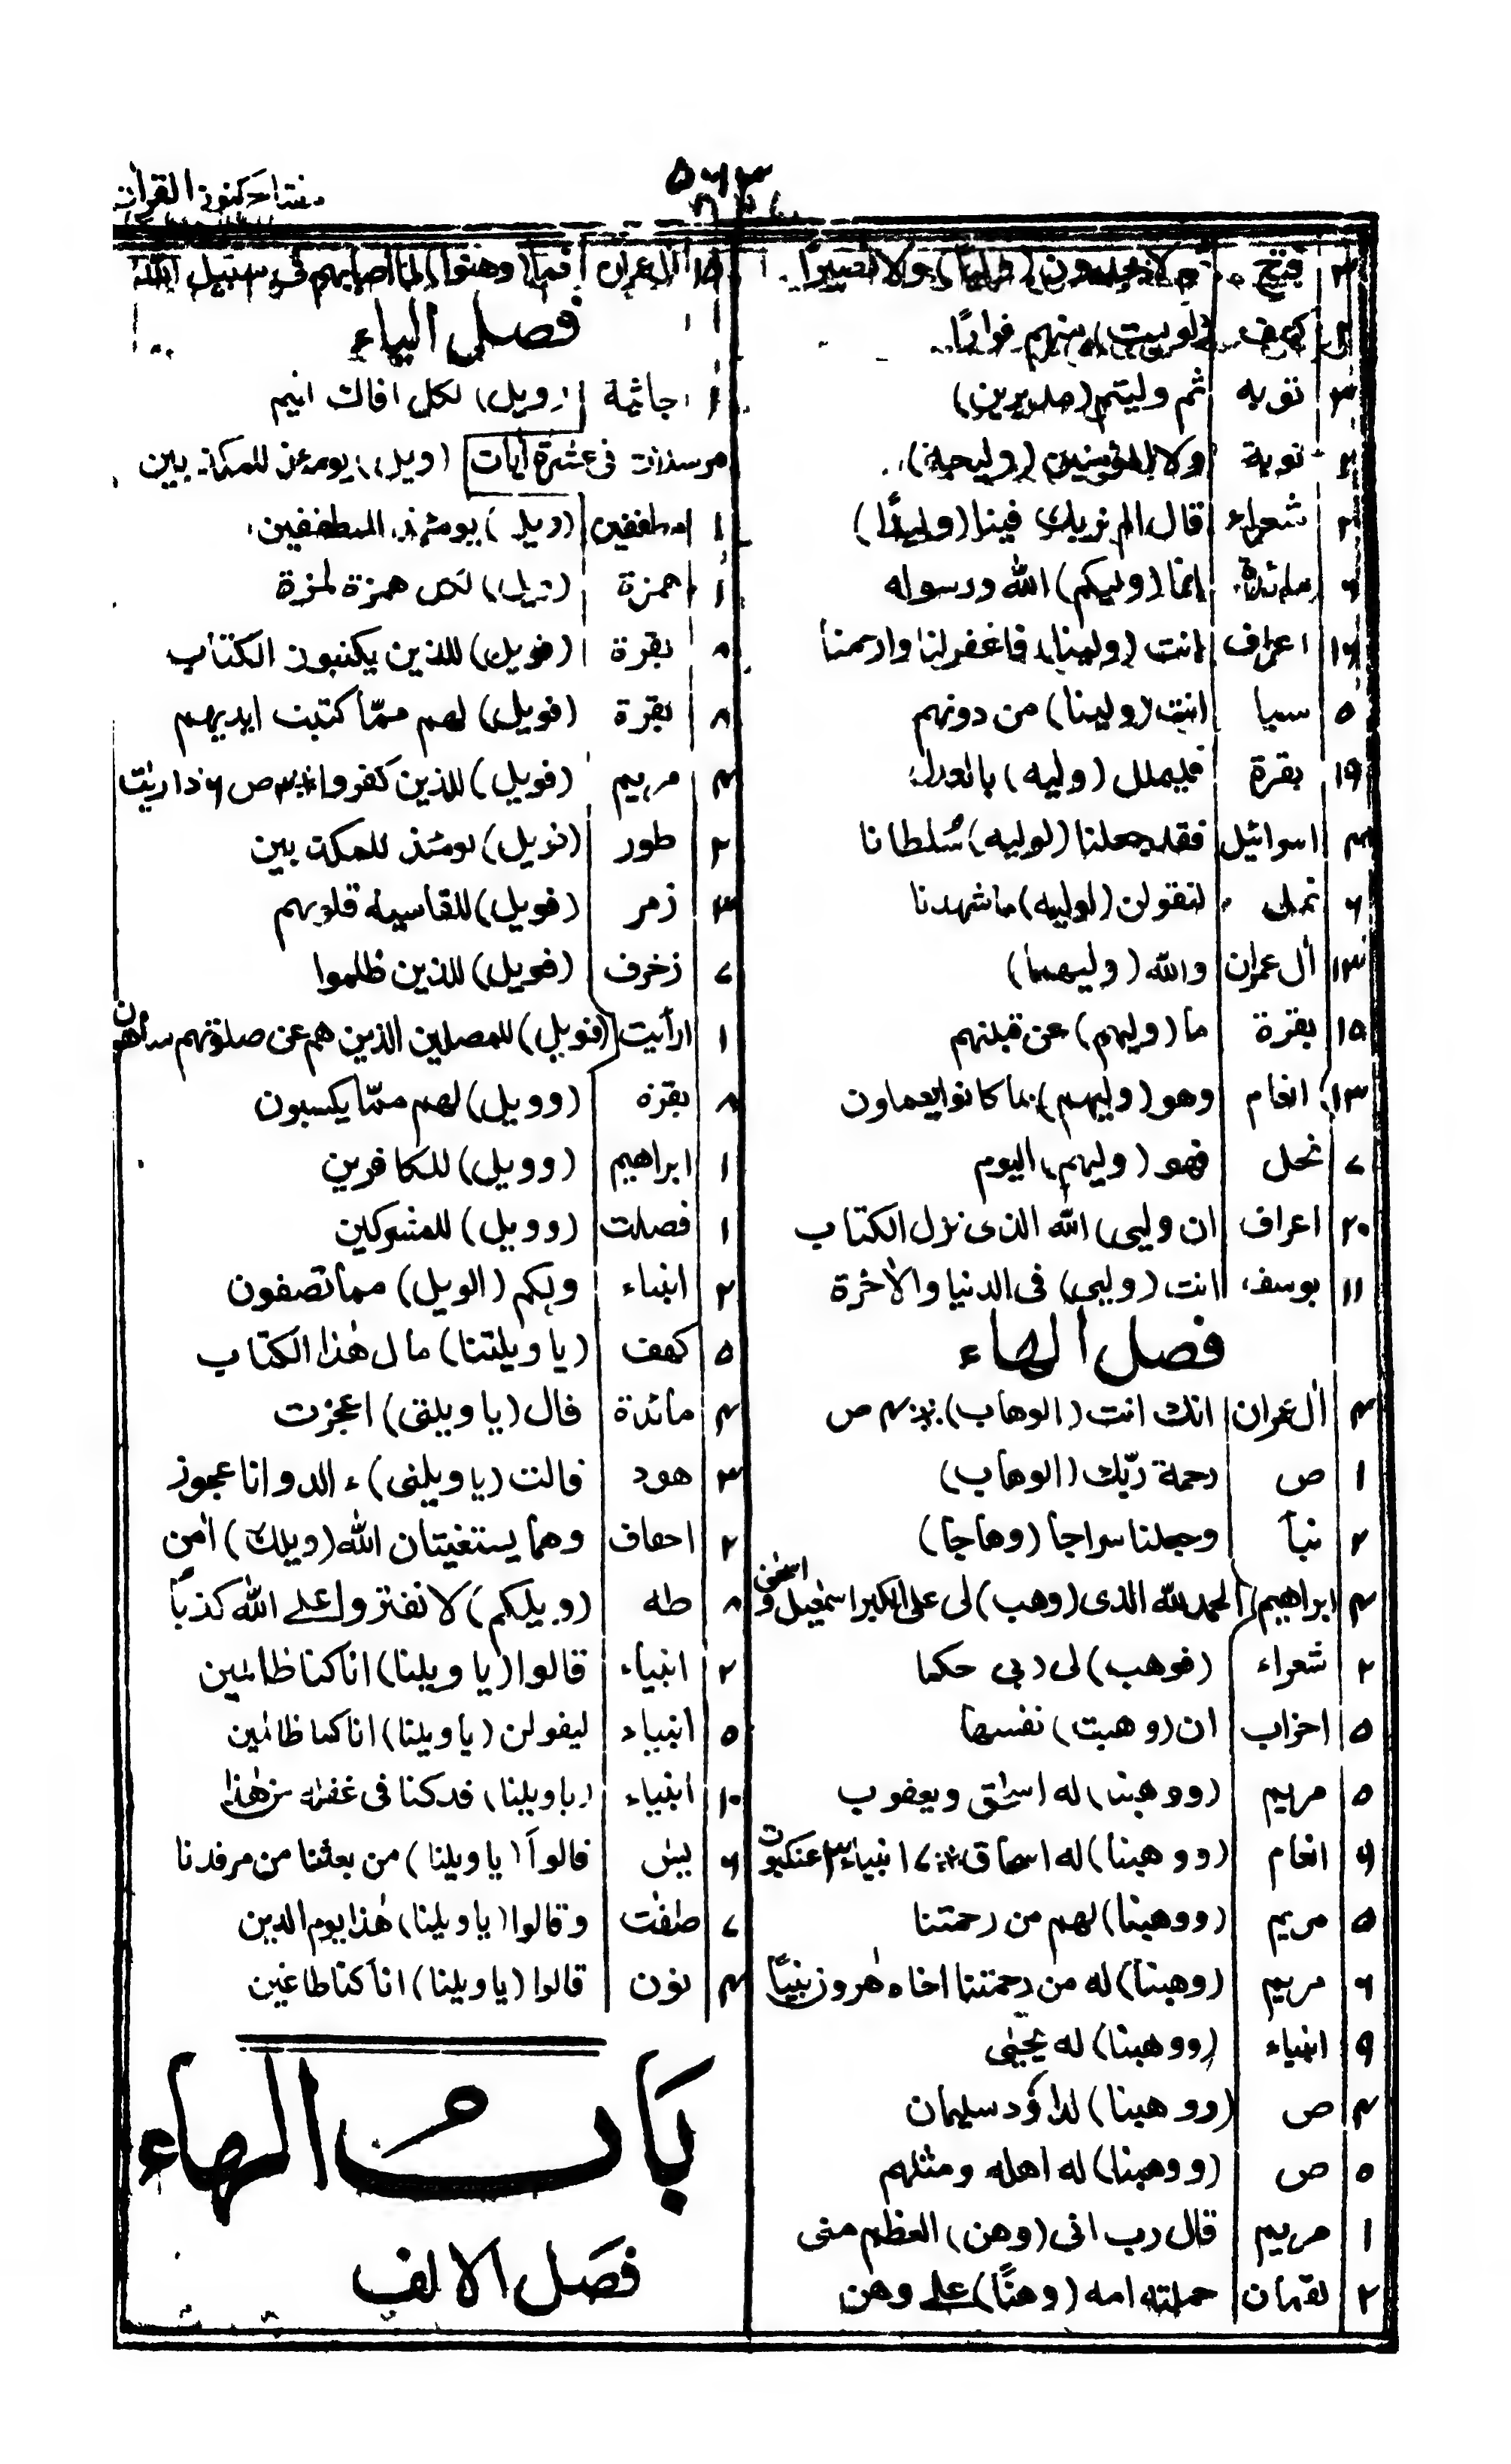 مفتاح كنوز القران
٥٦٣
٣ فتح ولا يجدون (وليا) ولا نصيرا
كهف لوليت منهم فرارًا
٣ توبه ثم وليتم (مدبرين)
٢ توبة ولا المؤمنين (وليجة)
٢ شعراء قال الم نربك فينا (وليدًا)
مائدة انما (وليكم) الله ورسوله
١٩ اعراف انت (ولينا) فاغفر لنا وارحمنا
٥ سبا انت (ولينا) من دونهم
١٩ بقرة فليملل (وليه) بالعدل
٣ اسرائيل فقد جعلنا (لوليه) سُلطانا
نمل لنقولن (لوليه) ما شهدنا
١٣ اٰل عمران والله (وليهما)
١٥ بقرة ما (وليهم) عن قبلتهم
١٣ انعام وهو (وليهم) بما كانوا يعملون
٧ نحل فهو (وليهم) اليوم
٢٠ اعراف ان وليى الله الذى نزل الكتاب
١١ يوسف انت (وليى) فى الدنيا والاٰخرة
فصل الهاء
٣ اٰل عمران انك انت (الوهاب) ٪ ٣ ص
١ ص رحمة ربّك (الوهاب)
٢ نبأ وجعلنا سراجا (وهاجا)
٣ ابراهيم الحمد للّٰه الذى (وهب) لى على الكبر اسمٰعيل و اسحٰق
٢ شعراء (فوهب) لى ربى حكما
٥ احزاب ان (وهبت) نفسها
٥ مريم (ووهبنا) له اسحٰق ويعقوب
٩ انعام (ووهبنا) له اسحاق ٪ ٧ انبياء ٣ عنكبوت
٥ مريم (ووهبنا) لهم من رحمتنا
٤ مريم (وهبنا) له من رحمتنا اخاه هٰرون نبيًّا
٩ انبياء (ووهبنا) له يحيٰى
٣ ص (ووهبنا) لداؤد سليمان
٥ ص (ووهبنا) له اهله ومثلهم
١ مريم قال رب انى (وهن) العظم منى
٢ لقمان حملته امه (وهنًا) علے وهن
١٥ اٰل عمران فما (وهنوا) لما اصابهم فى سبيل اللّٰه
فصل الياء
١ جاثية (ويل) لكل افاك اثيم
مرسلات فى عشرة اٰيات (ويل) يومئذ للمكذبين
١ مطففين (ويل) يومئذ للمطففين
١ همزة (ويل) لكل همزة لمزة
٨ بقرة (فويل) للذين يكتبون الكتاب
٨ بقرة (فويل) لهم ممّا كتبت ايديهم
٣ مريم (فويل) للذين كفروا ٪ ٣ ص ٤ ذاريٰت
٢ طور (فويل) يومئذ للمكذبين
٣ زمر (فويل) للقاسية قلوبهم
٧ زخرف (فويل) للذين ظلموا
١ ارأيت (فويل) للمصلين الذين هم عن صلوتهم ساهون
٨ بقره (وويل) لهم ممّا يكسبون
١ ابراهيم (وويل) للكافرين
١ فصلت (وويل) للمشركين
٢ انبياء ولكم (الويل) مما تصفون
٥ كهف (يا ويلتنا) مال هٰذا الكتاب
٣ مائدة قال (يا ويلتى) اعجزت
٣ هود قالت (يا ويلتى) ء الد وانا عجوز
٢ احقاف وهما يستغيثان اللّٰه (ويلك) اٰمن
٨ طه (ويلكم) لا تفتروا علے اللّٰه كذبًا
٢ انبياء قالوا (يا ويلنا) انا كنا ظالمين
٥ انبياء ليقولن (يا ويلنا) انا كنا ظالمين
١٠ انبياء (يا ويلنا) قد كنا فى غفلة من هٰذا
٤ يٰس قالوا (يا ويلنا) من بعثنا من مرقدنا
٧ صٰفٰت وقالوا (يا ويلنا) هٰذا يوم الدين
٣ نون قالوا (يا ويلنا) انا كنا طاغين
باب الهاء
فصل الالف